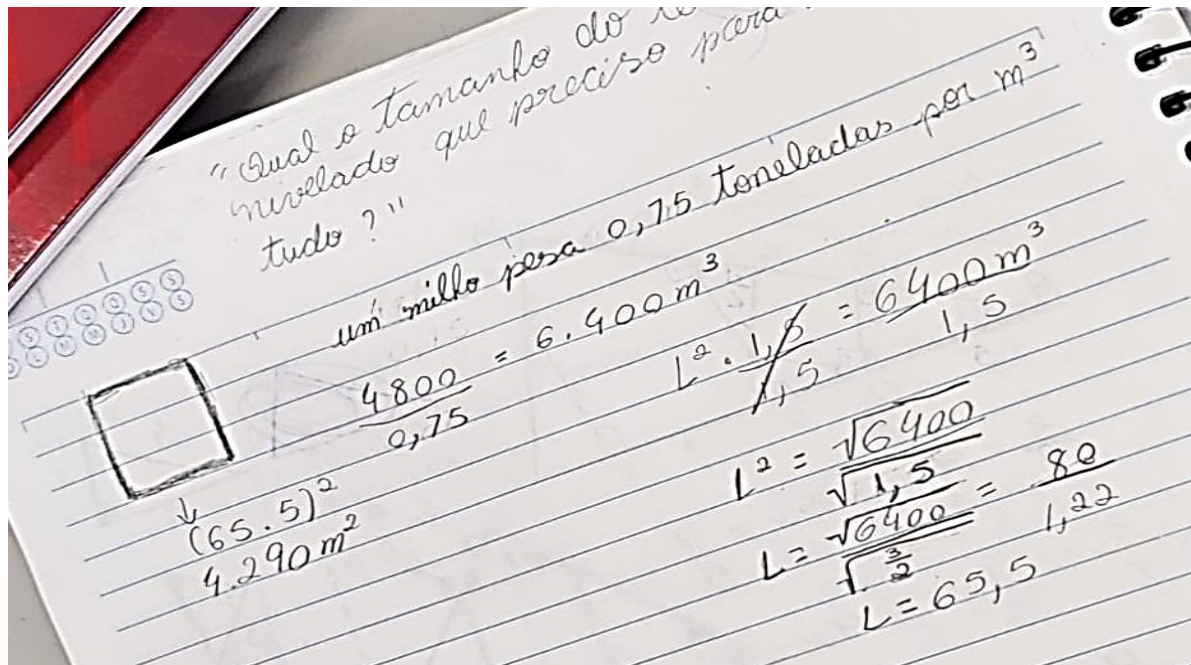 "Qual o tamanho do
nivelado que preciso para
tudo?"
um milho pesa 0,75 toneladas por m³
4800/0,75 = 6.400m³
L² · 1,5/1,5 = 6400m³/1,5
L² = √6400/√1,5
L = √6400/√(3/2) = 80/1,22
L = 65,5
↓
(65.5)²
4.290m²